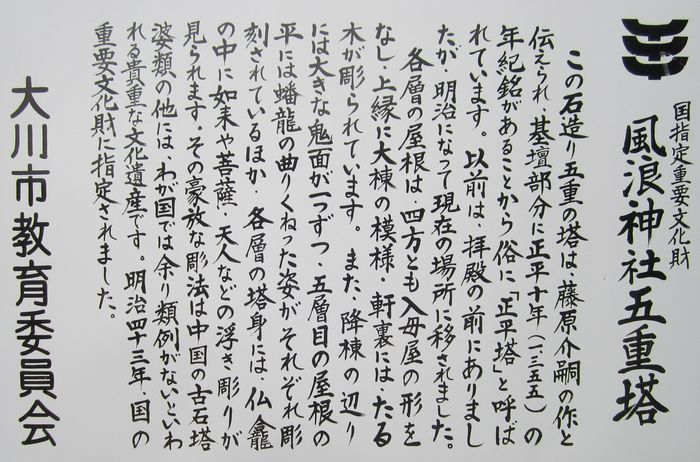 国指定重要文化財
風浪神社五重塔
この石造り五重の塔は、藤原介嗣の作と
伝えられ、基壇部分に正平十年(一三五五)の
年紀銘があることから俗に「正平塔」と呼ば
れています。以前は、拝殿の前にありまし
たが、明治になって現在の場所に移されました。
各層の屋根は、四方とも入母屋の形を
なし、上縁に大棟の模様、軒裏には、たる
木が彫られています。また、降棟の辺り
には大きな鬼面が一つずつ、五層目の屋根の
平には蟠龍の曲りくねった姿がそれぞれ彫
刻されているほか、各層の塔身には、仏龕
の中に如来や菩薩、天人などの浮き彫りが
見られます。その豪放な彫法は中国の古石塔
婆類の他には、わが国では余り類例がないといわ
れる貴重な文化遺産です。明治四十三年、国の
重要文化財に指定されました。
大川市教育委員会